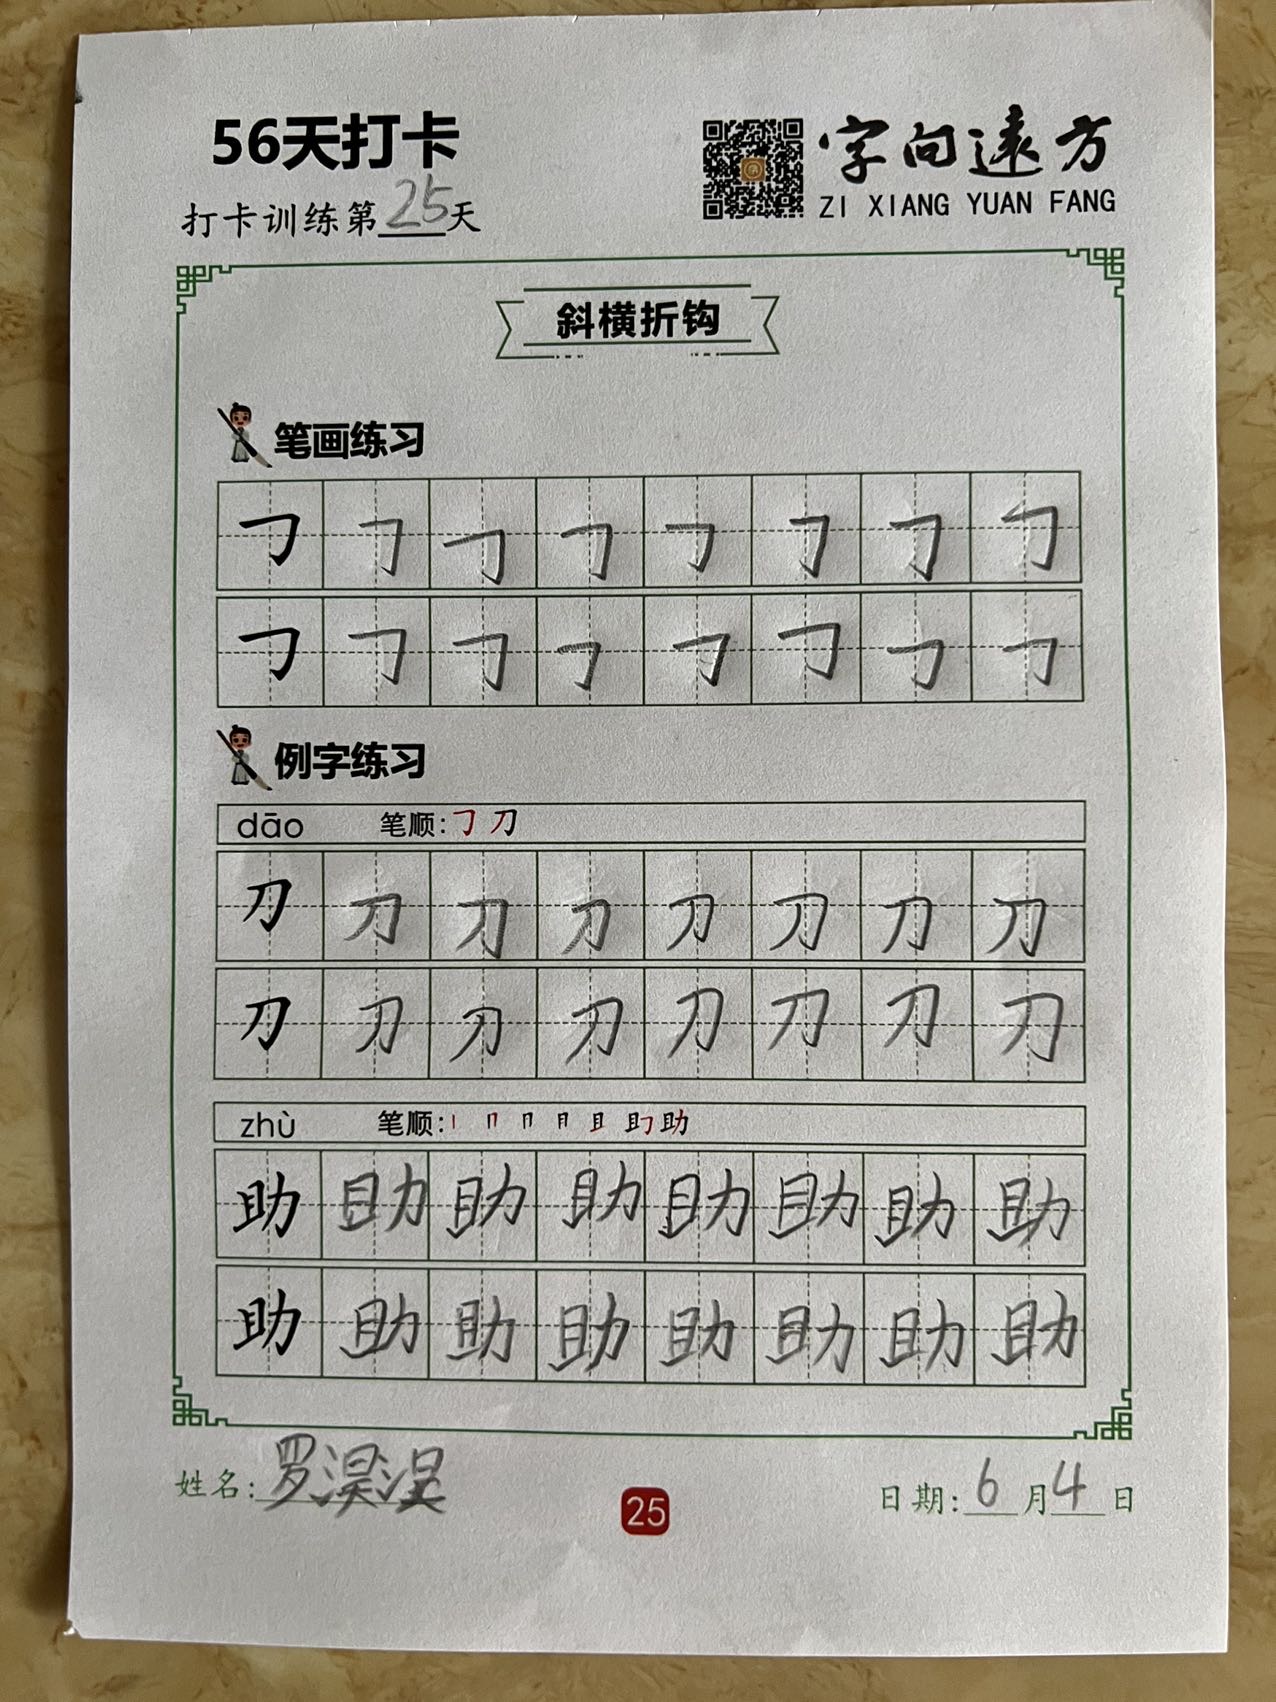 56天打卡
字向远方
ZI XIANG YUAN FANG
打卡训练第25天
斜横折钩
笔画练习
㇆ ㇆ ㇆ ㇆ ㇆ ㇆ ㇆ ㇆
㇆ ㇆ ㇆ ㇆ ㇆ ㇆ ㇆ ㇆
例字练习
dāo 笔顺:㇆ 刀
刀 刀 刀 刀 刀 刀 刀 刀
刀 刀 刀 刀 刀 刀 刀 刀
zhù 笔顺: 助
助 助 助 助 助 助 助 助
助 助 助 助 助 助 助 助
姓名:罗淏
25
日期:6月4日